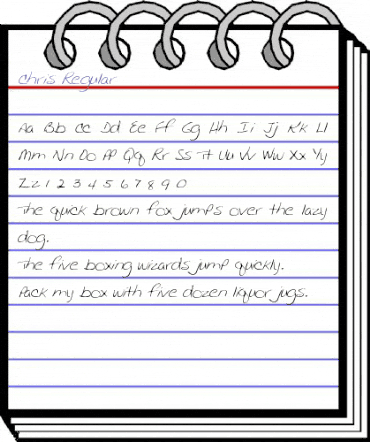 Chris Regular
Aa Bb Cc Dd Ee Ff Gg Hh Ii Jj Kk Ll
Mm Nn Oo Pp Qq Rr Ss Tt Uu Vv Ww Xx Yy
Zz 1 2 3 4 5 6 7 8 9 0
The quick brown fox jumps over the lazy
dog.
The five boxing wizards jump quickly.
Pack my box with five dozen liquor jugs.